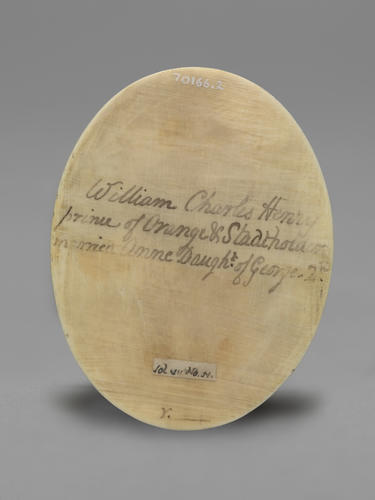 70166.2
William Charles Henry
prince of Orange & Stadtholder
married Anne Daught. of George. 2d
r.